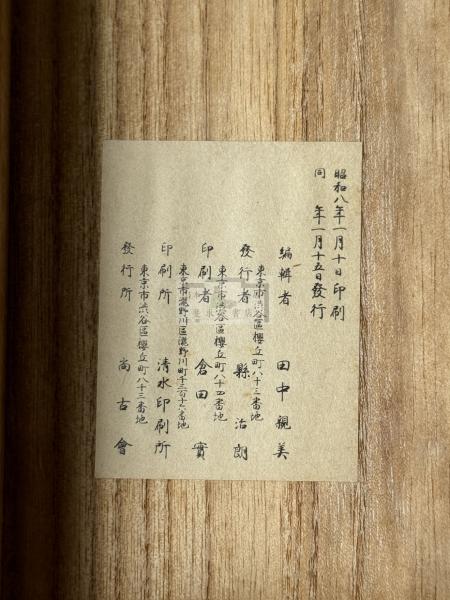 昭和八年一月十日印刷
同　年一月十五日發行
編輯者　田中親美
東京市渋谷區櫻丘町八十三番地
發行者　縣治朗
東京市渋谷區櫻丘町八十四番地
印刷者　倉田實
東京市瀧野川區瀧野川町千六百十六番地
印刷所　清水印刷所
東京市渋谷區櫻丘町八十三番地
發行所　尚古會